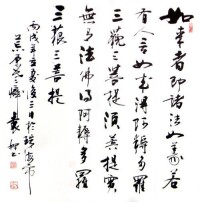 如来者即諸法如義若
有人言如来得阿耨多羅
三藐三菩提須菩提實
無有法佛得阿耨多羅
三藐三菩提